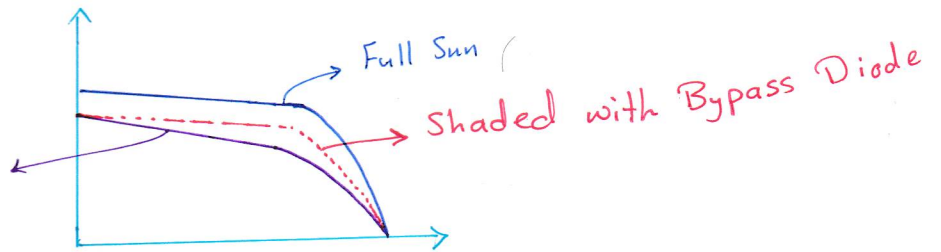 Full Sun
Shaded with Bypass Diode